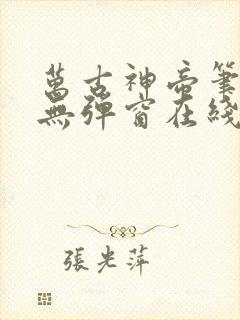 萬古神帝筆
無彈窗在綫
張光萍